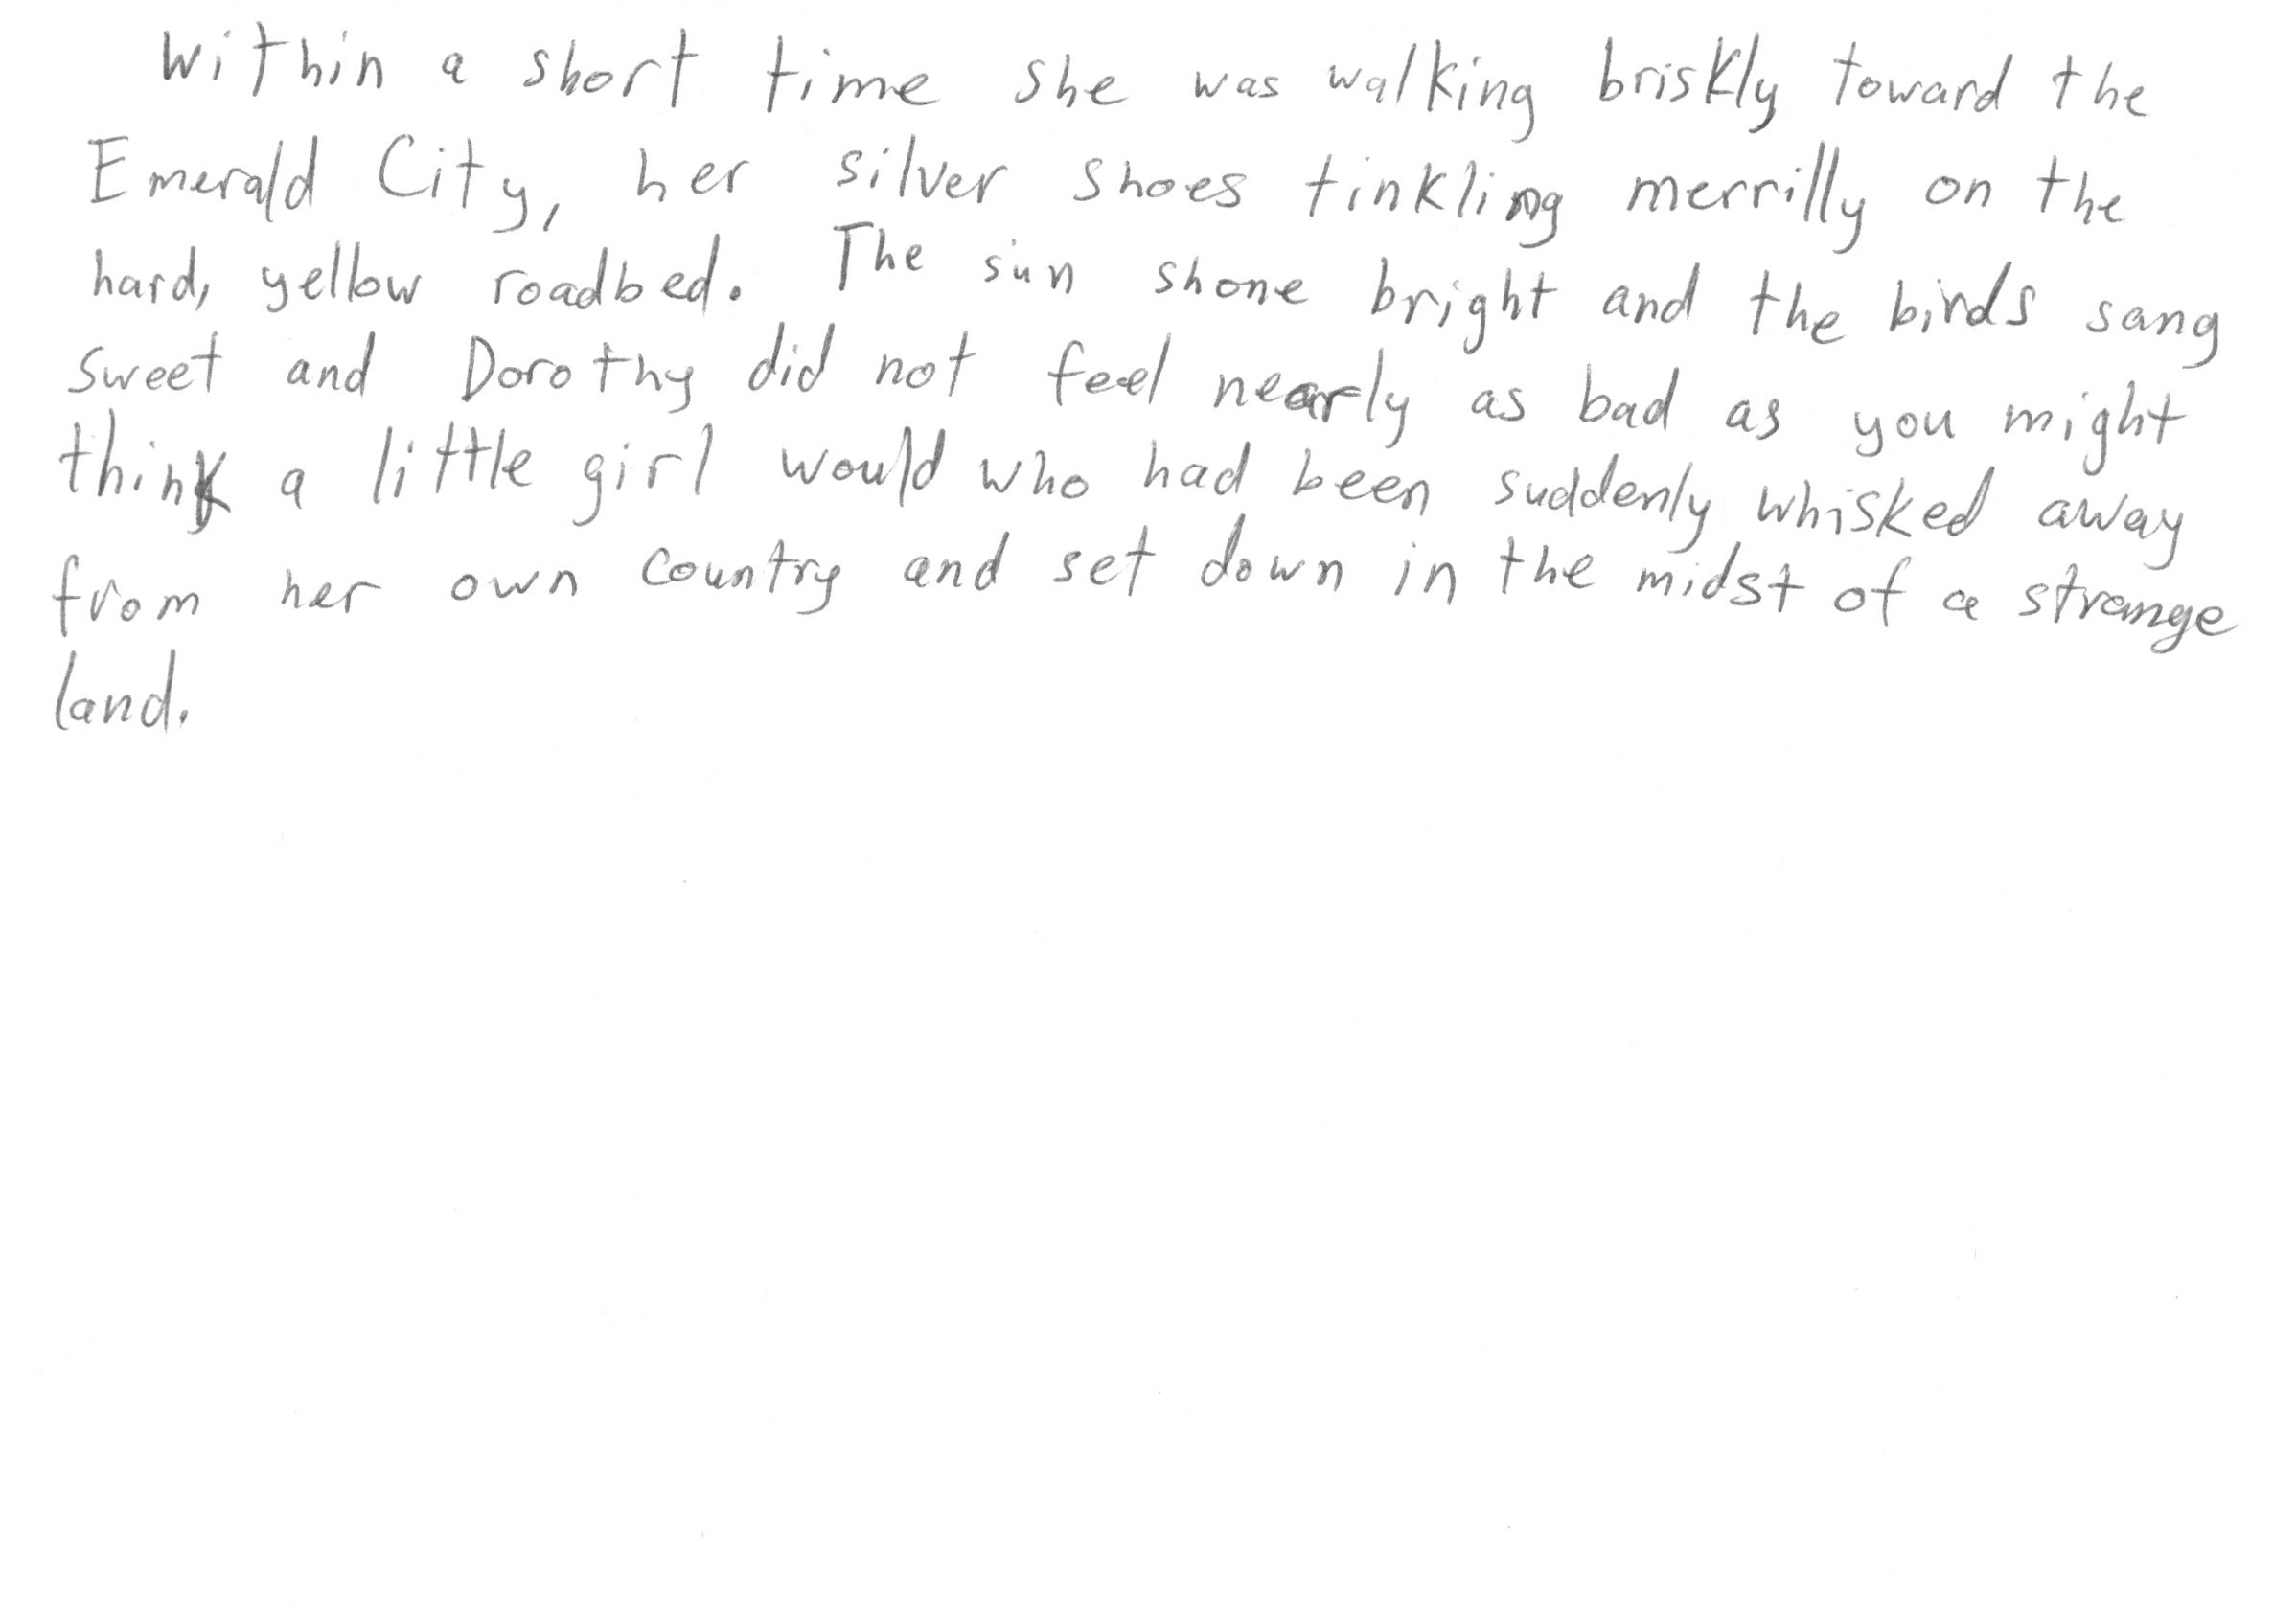 Within a short time she was walking briskly toward the
Emerald City, her silver shoes tinkling merrilly on the
hard, yellow roadbed. The sun shone bright and the birds sang
sweet and Dorothy did not feel nearly as bad as you might
think a little girl would who had been suddenly whisked away
from her own country and set down in the midst of a strange
land.